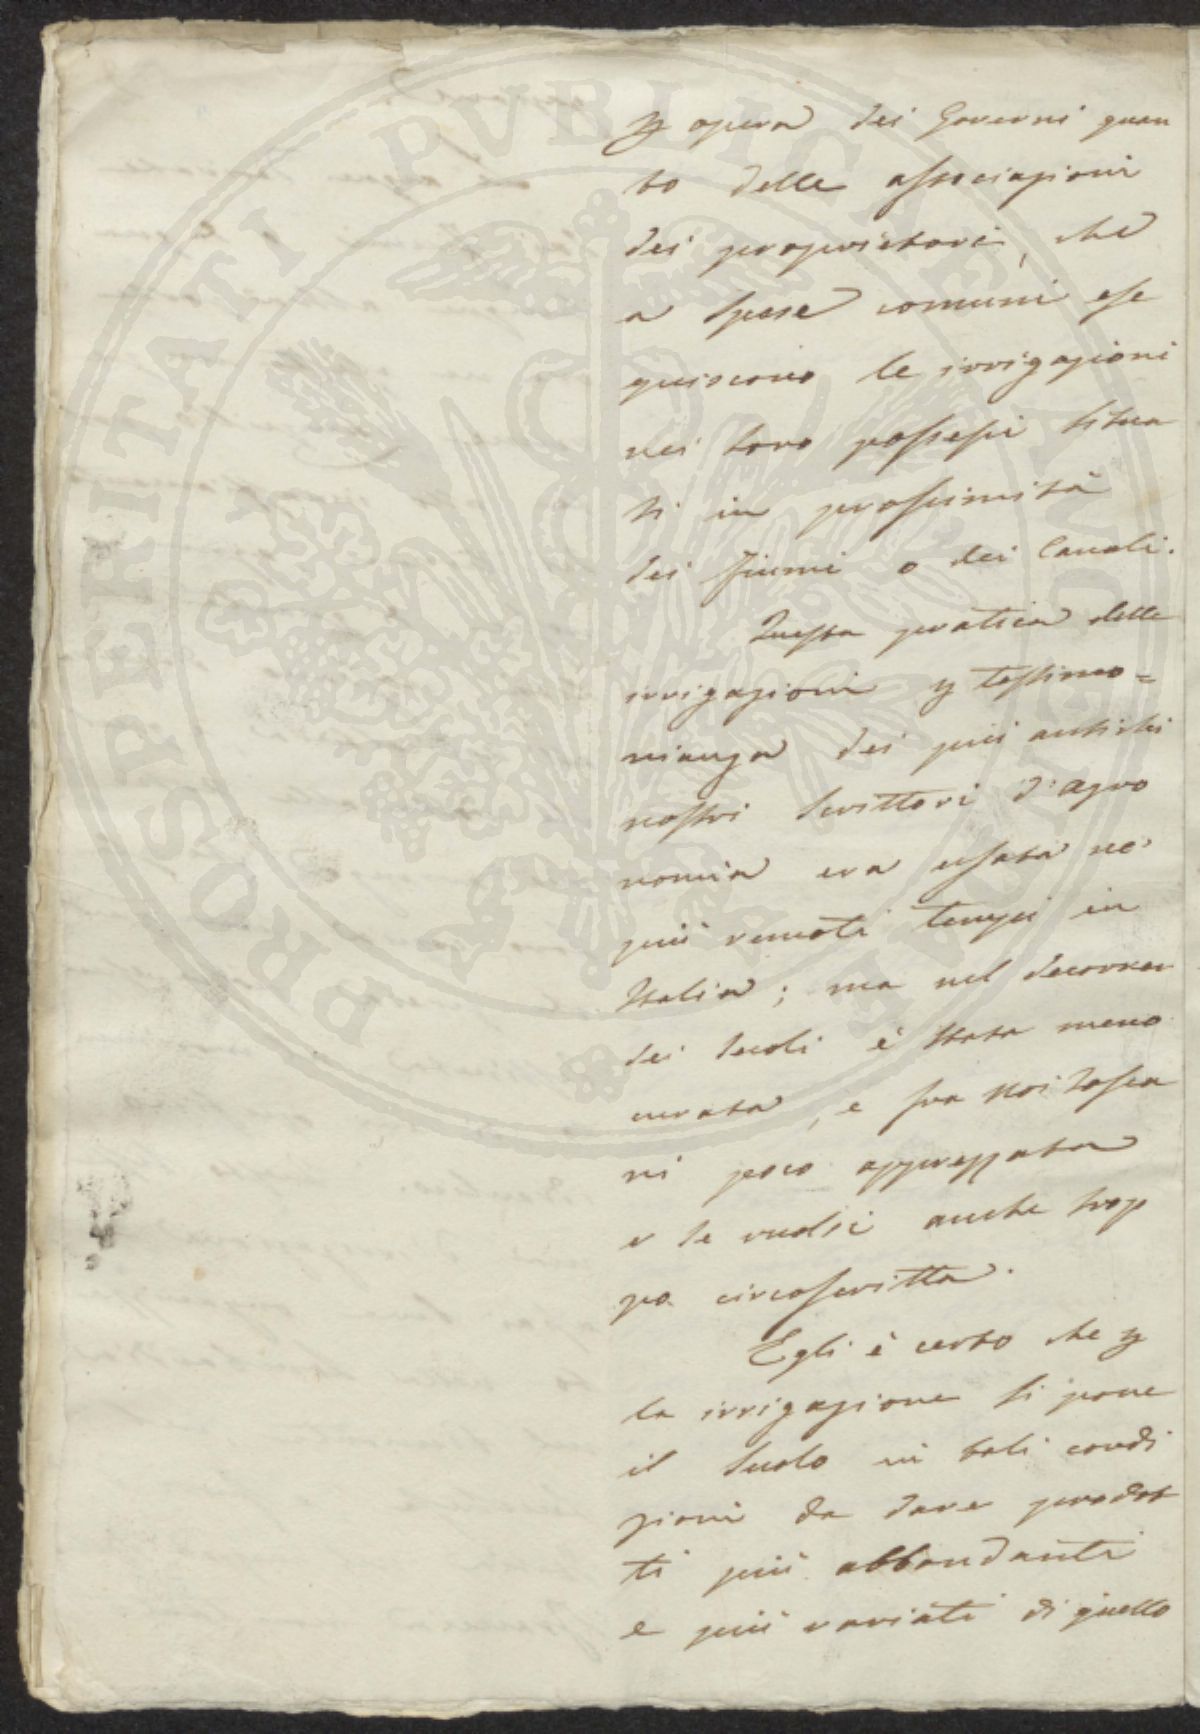 p opera dei Governi quan
to delle associazioni
dei proprietari, che
a spese comuni ese
guiscono le irrigazioni
nei loro possessi situa
ti in prossimità
dei fiumi o dei Canali.
Questa pratica delle
irrigazioni p testimo=
nianza dei più antichi
nostri Scrittori d'Agro
nomia era usata ne'
più remoti tempi in
Italia; ma nel decorrer
dei Secoli è stata meno
curata, e fra noi Tosca
ni poco apprezzata
e se vuolsi anche trop
po circoscritta.
Egli è certo che p
la irrigazione si pone
il Suolo in tali condi
zioni da dare prodot
ti più abbondanti
e più variati di quello
PROSPERITATI PVBLICAE AVGENDAE